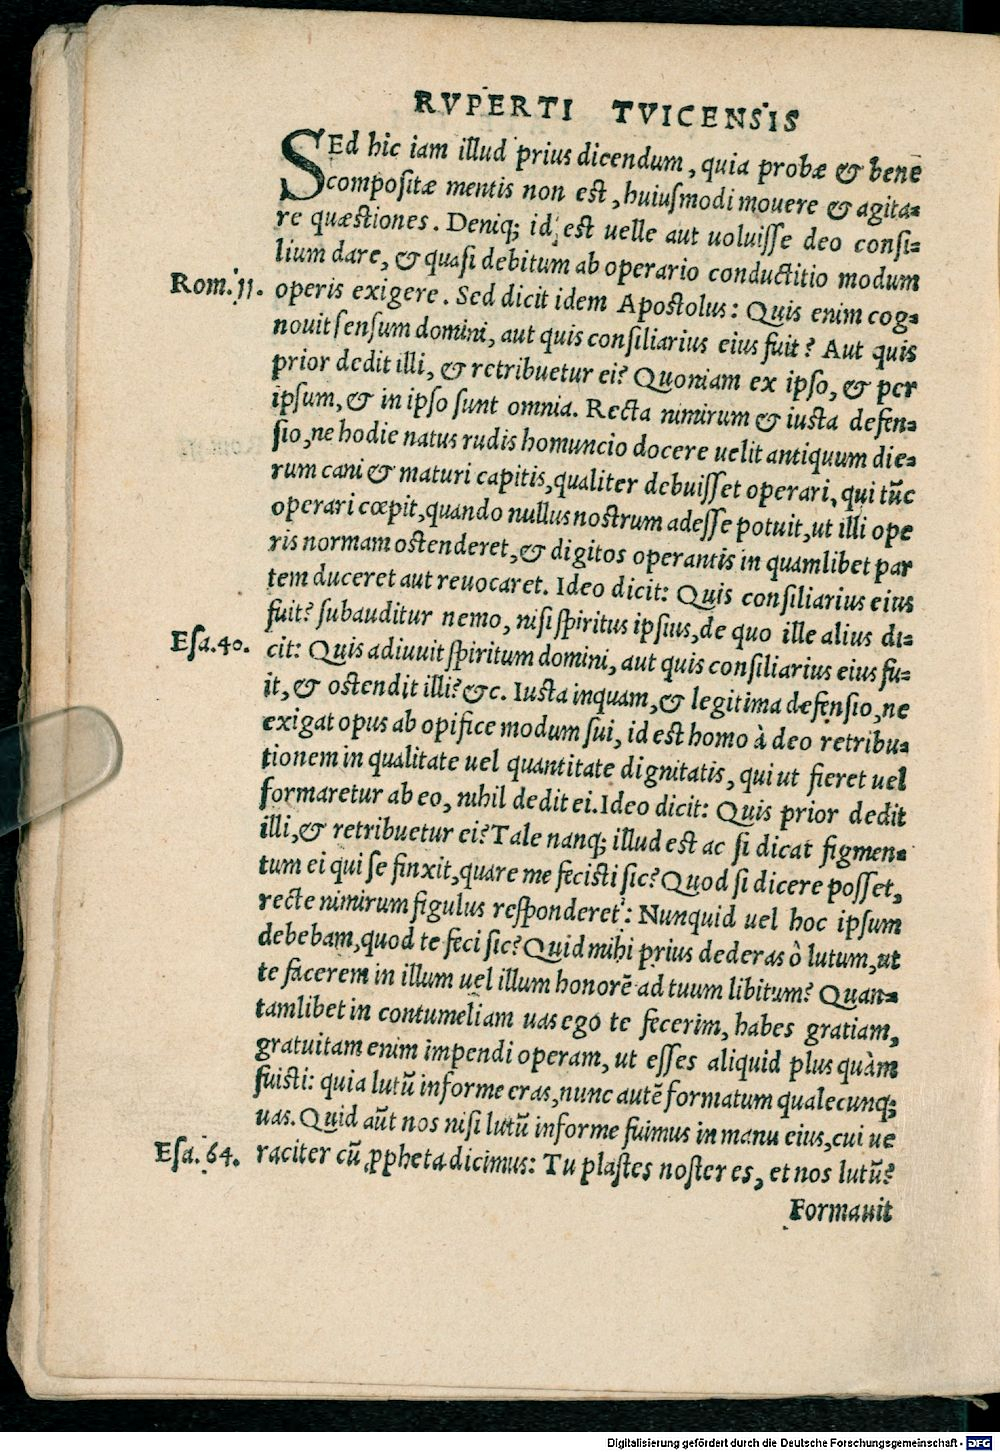 RVPERTI TVICENSIS
SEd hic iam illud prius dicendum, quia probæ & bene
compositæ mentis non est, huiusmodi mouere & agita=
re quæstiones. Deniq; id est uelle aut uoluisse deo consi=
lium dare, & quasi debitum ab operario conductitio modum
Rom. 11. operis exigere. Sed dicit idem Apostolus: Quis enim cog=
nouit sensum domini, aut quis consiliarius eius fuit? Aut quis
prior dedit illi, & retribuetur ei? Quoniam ex ipso, & per
ipsum, & in ipso sunt omnia. Recta nimirum & iusta defen=
sio, ne hodie natus rudis homuncio docere uelit antiquum die=
rum cani & maturi capitis, qualiter debuisset operari, qui tūc
operari cœpit, quando nullus nostrum adesse potuit, ut illi ope
ris normam ostenderet, & digitos operantis in quamlibet par
tem duceret aut reuocaret. Ideo dicit: Quis consiliarius eius
fuit? subauditur nemo, nisi spiritus ipsius, de quo ille alius di=
Esa. 40. cit: Quis adiuuit spiritum domini, aut quis consiliarius eius fu=
it, & ostendit illi? &c. Iusta inquam, & legitima defensio, ne
exigat opus ab opifice modum sui, id est homo à deo retribu=
tionem in qualitate uel quantitate dignitatis, qui ut fieret uel
formaretur ab eo, nihil dedit ei. Ideo dicit: Quis prior dedit
illi, & retribuetur ei? Tale nanq; illud est ac si dicat figmen=
tum ei qui se finxit, quare me fecisti sic? Quod si dicere posset,
recte nimirum figulus responderet: Nunquid uel hoc ipsum
debebam, quod te feci sic? Quid mihi prius dederas ò lutum, ut
te facerem in illum uel illum honorē ad tuum libitum? Quan=
tamlibet in contumeliam uas ego te fecerim, habes gratiam,
gratuitam enim impendi operam, ut esses aliquid plus quàm
fuisti: quia lutū informe eras, nunc autē formatum qualecunq;
uas. Quid aūt nos nisi lutū informe fuimus in manu eius, cui ue
Esa. 64. raciter cū ꝓpheta dicimus: Tu plastes noster es, et nos lutū?
Formauit
Digitalisierung gefördert durch die Deutsche Forschungsgemeinschaft - DFG